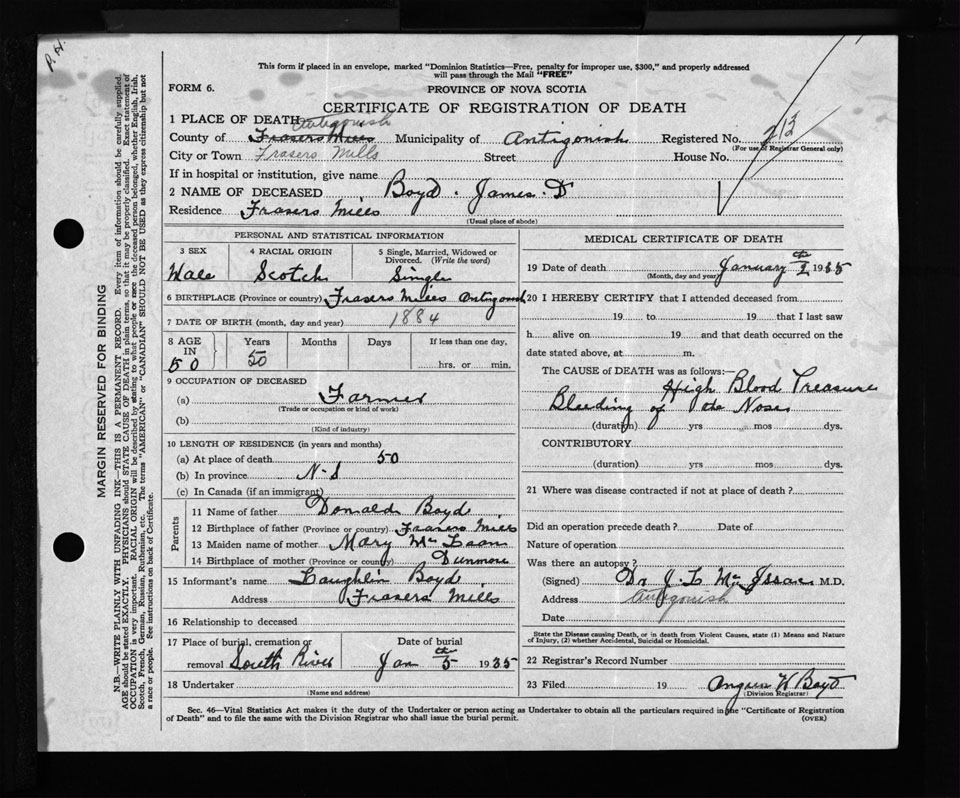 P. H.
This form if placed in an envelope, marked "Dominion Statistics—Free, penalty for improper use, $300," and properly addressed
will pass through the Mail "FREE"
FORM 6.
PROVINCE OF NOVA SCOTIA
CERTIFICATE OF REGISTRATION OF DEATH
1 PLACE OF DEATH Antigonish
County of Frasers Mills Municipality of Antigonish Registered No. 213
(For use of Registrar General only)
City or Town Frasers Mills Street House No.
If in hospital or institution, give name
2 NAME OF DECEASED Boyd . James . D
Residence Frasers Mills
(Usual place of abode)
PERSONAL AND STATISTICAL INFORMATION
3 SEX 4 RACIAL ORIGIN 5 Single, Married, Widowed or Divorced. (Write the word)
Male Scotch Single
6 BIRTHPLACE (Province or country) Frasers Mills Antigonish
7 DATE OF BIRTH (month, day and year) 1884
8 AGE IN Years Months Days If less than one day,
50 50 hrs. or min.
9 OCCUPATION OF DECEASED
(a) Farmer
(Trade or occupation or kind of work)
(b)
(Kind of industry)
10 LENGTH OF RESIDENCE (in years and months)
(a) At place of death 50
(b) In province N-S
(c) In Canada (if an immigrant)
Parents
11 Name of father Donald Boyd
12 Birthplace of father (Province or country) Frasers Mills
13 Maiden name of mother Mary Mc
14 Birthplace of mother (Province or county) Dunmore
15 Informant's name Laughlin Boyd
Address Frasers Mills
16 Relationship to deceased
17 Place of burial, cremation or removal South River Date of burial Jan 5th 1935
18 Undertaker
(Name and address)
MEDICAL CERTIFICATE OF DEATH
19 Date of death January th 1935
(Month, day and year)
20 I HEREBY CERTIFY that I attended deceased from
19 to 19 that I last saw
h alive on 19 and that death occurred on the
date stated above, at m.
The CAUSE of DEATH was as follows:—
High Blood Pressure
Bleeding of the Nose
(duration) yrs mos dys.
CONTRIBUTORY
(duration) yrs mos dys.
21 Where was disease contracted if not at place of death?
Did an operation precede death? Date of
Nature of operation
Was there an autopsy?
(Signed) Dr J. L Mc Isaac M.D.
Address Antigonish
Date
State the Disease causing Death, or in death from Violent Causes, state (1) Means and Nature
of Injury, (2) whether Accidental, Suicidal or Homicidal.
22 Registrar's Record Number
23 Filed 19 Angus W Boyd
(Division Registrar)
Sec. 46—Vital Statistics Act makes it the duty of the Undertaker or person acting as Undertaker to obtain all the particulars required in the "Certificate of Registration
of Death" and to file the same with the Division Registrar who shall issue the burial permit.
(OVER)
MARGIN RESERVED FOR BINDING
N.B.—WRITE PLAINLY WITH UNFADING INK—THIS IS A PERMANENT RECORD. Every item of information should be carefully supplied.
AGE should be stated EXACTLY. PHYSICIANS should STATE CAUSE OF DEATH in plain terms, so that it may be properly classified. Exact statement of
OCCUPATION is very important. RACIAL ORIGIN will be described by stating to what people or race the deceased person belonged, whether English, Irish,
Scotch, French, German, Russian, Ruthenian, etc. The terms "AMERICAN" or "CANADIAN" SHOULD NOT BE USED as they express citizenship but not
a race or people. See instructions on back of Certificate.